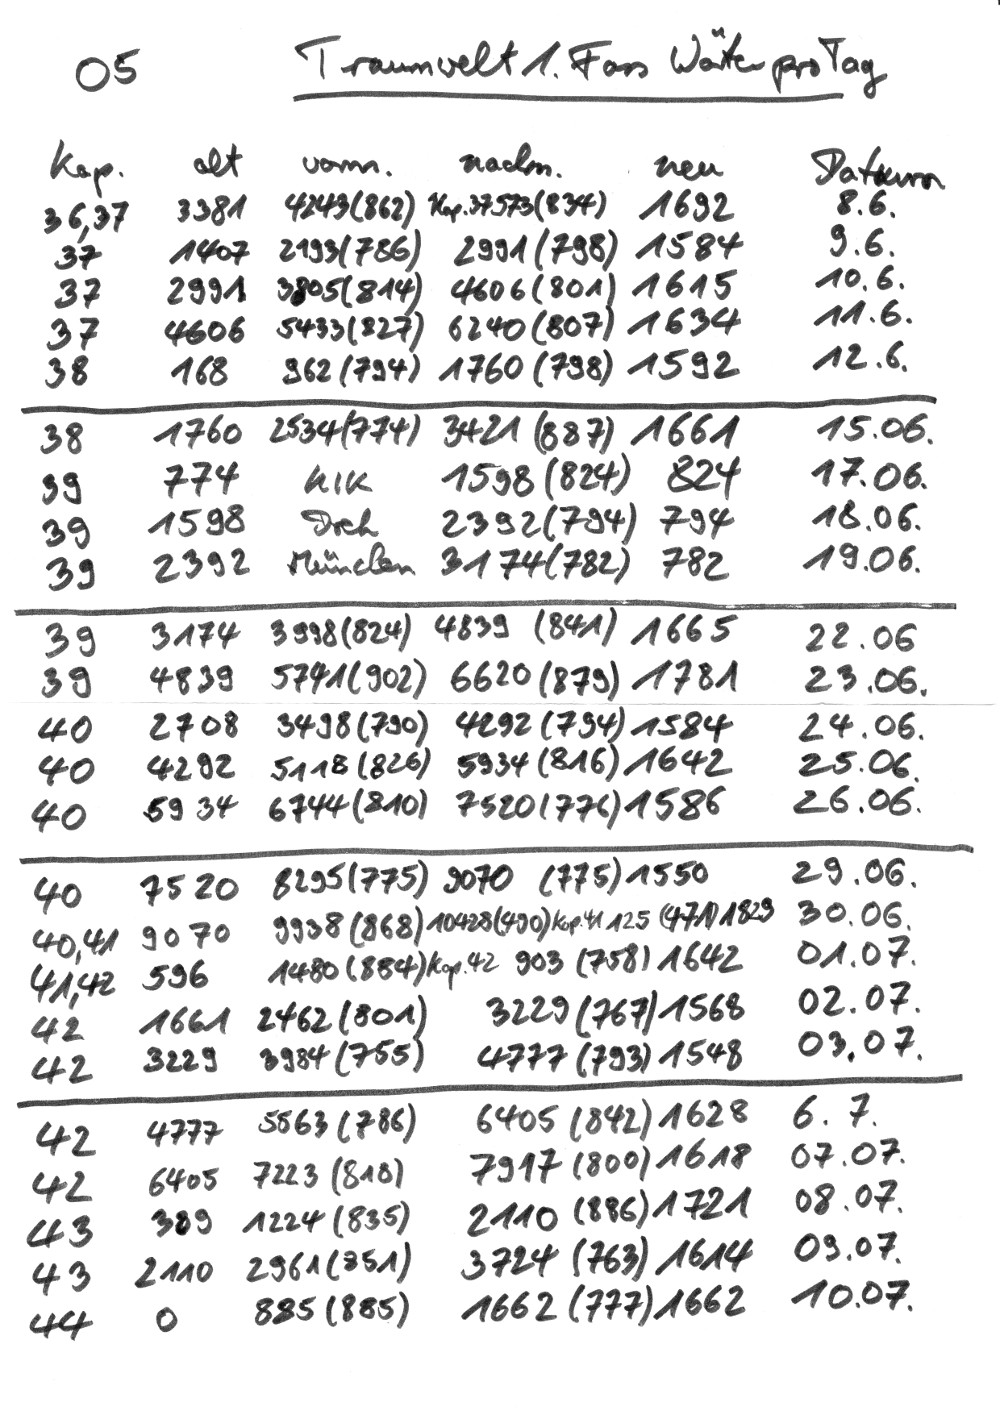 05 Traumwelt 1. Fass Wörter pro Tag
Kap. alt vorm. nachm. neu Datum
36,37 3381 4243(862) Kap.37 573(834) 1692 8.6.
37 1407 2193(786) 2991(798) 1584 9.6.
37 2991 3805(814) 4606(801) 1615 10.6.
37 4606 5433(827) 6240(807) 1634 11.6.
38 168 962(794) 1760(798) 1592 12.6.
38 1760 2534(774) 3421(887) 1661 15.06.
39 774 KIK 1598(824) 824 17.06.
39 1598 Doch 2392(794) 794 18.06.
39 2392 München 3174(782) 782 19.06.
39 3174 3998(824) 4839 (841) 1665 22.06
39 4839 5741(902) 6620(879) 1781 23.06.
40 2708 3498(790) 4292(794) 1584 24.06.
40 4292 5118(826) 5934(816) 1642 25.06.
40 5934 6744(810) 7520(776) 1586 26.06.
40 7520 8295(775) 9070 (775) 1550 29.06.
40,41 9070 9938(868) 10428(490) Kap.41 125 (471) 1829 30.06.
41,42 596 1480(884) Kap.42 903 (758) 1642 01.07.
42 1661 2462(801) 3229(767) 1568 02.07.
42 3229 3984(755) 4777(793) 1548 03.07.
42 4777 5563(786) 6405(842) 1628 6.7.
42 6405 7223(818) 7917(800) 1618 07.07.
43 389 1224(835) 2110(886) 1721 08.07.
43 2110 2961(851) 3724(763) 1614 09.07.
44 0 885(885) 1662(777) 1662 10.07.